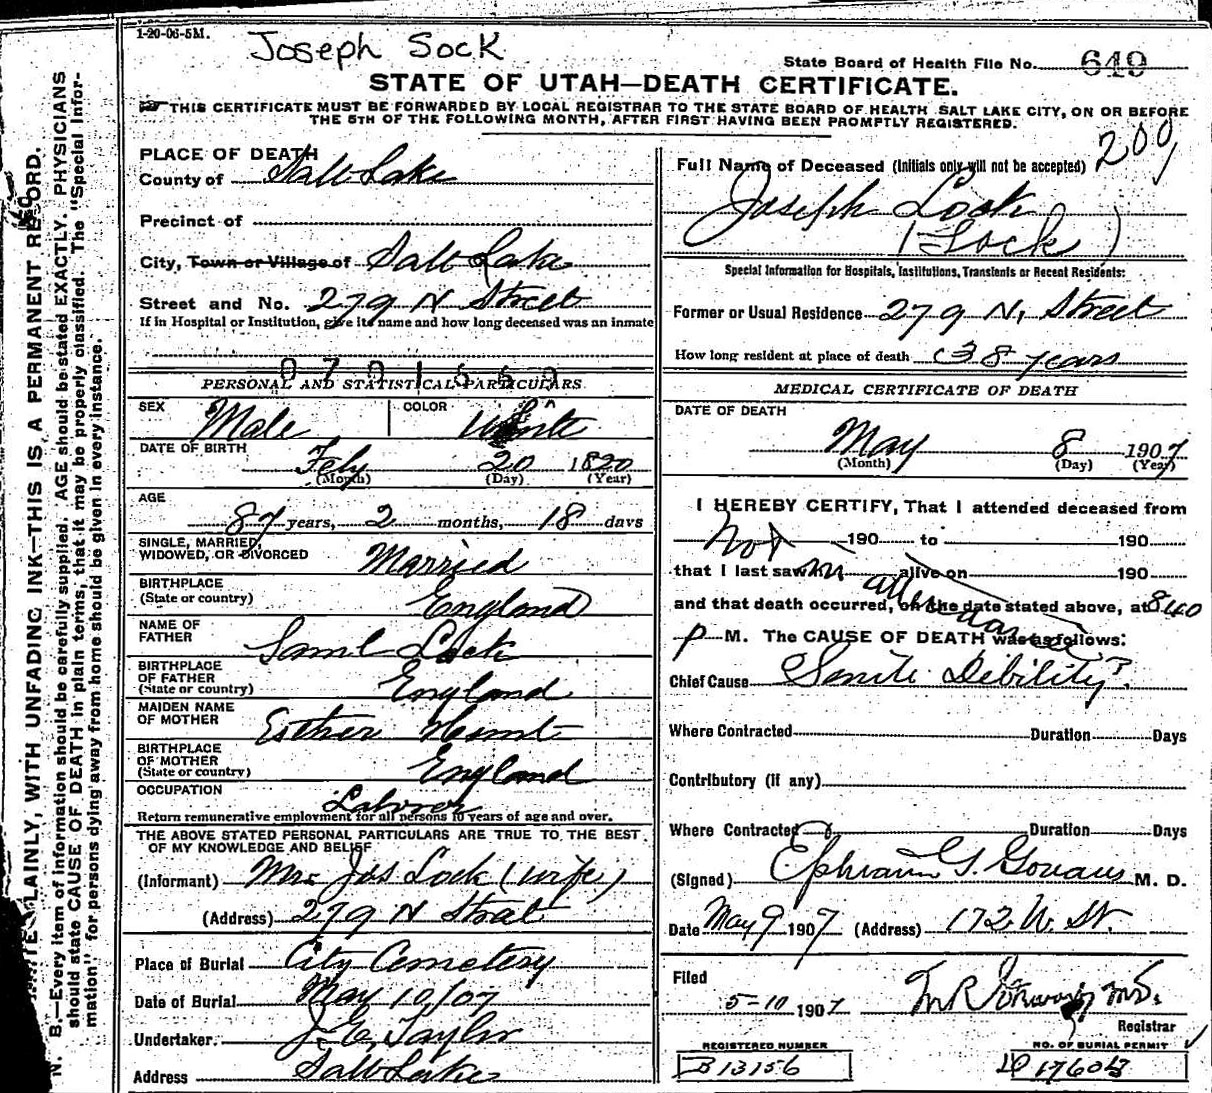 1-20-06-5M.
Joseph Sock
State Board of Health File No. 649
STATE OF UTAH—DEATH CERTIFICATE.
THIS CERTIFICATE MUST BE FORWARDED BY LOCAL REGISTRAR TO THE STATE BOARD OF HEALTH SALT LAKE CITY, ON OR BEFORE
THE 5TH OF THE FOLLOWING MONTH, AFTER FIRST HAVING BEEN PROMPTLY REGISTERED.
PLACE OF DEATH
County of Salt Lake
Precinct of
City, Town or Village of Salt Lake
Street and No. 279 N Street
If in Hospital or Institution, give its name and how long deceased was an inmate
PERSONAL AND STATISTICAL PARTICULARS
SEX Male COLOR White
DATE OF BIRTH Feby 20 1820
(Month) (Day) (Year)
AGE
87 years, 2 months, 18 days
SINGLE, MARRIED
WIDOWED, OR DIVORCED Married
BIRTHPLACE
(State or country) England
NAME OF
FATHER Saml Lock
BIRTHPLACE
OF FATHER
(State or country) England
MAIDEN NAME
OF MOTHER Esther Hunt
BIRTHPLACE
OF MOTHER
(State or country) England
OCCUPATION Laborer
Return remunerative employment for all persons 10 years of age and over.
THE ABOVE STATED PERSONAL PARTICULARS ARE TRUE TO THE BEST
OF MY KNOWLEDGE AND BELIEF
(Informant) Mrs Jos Lock (wife)
(Address) 279 N Street
Place of Burial City Cemetery
Date of Burial May 10/07
Undertaker. J. E. Taylor
Address Salt Lake
200
Full Name of Deceased (Initials only will not be accepted)
Joseph Lock
(Lock)
Special Information for Hospitals, Institutions, Transients or Recent Residents:
Former or Usual Residence 279 N. Street
How long resident at place of death 38 years
MEDICAL CERTIFICATE OF DEATH
DATE OF DEATH
May 8 1907
(Month) (Day) (Year)
I HEREBY CERTIFY, That I attended deceased from
Not 190 to 190
that I last saw in alive on 190
attendance
and that death occurred, on the date stated above, at 840
P M. The CAUSE OF DEATH was as follows:
Chief Cause Senile Debility
Where Contracted Duration Days
Contributory (if any)
Where Contracted Duration Days
(Signed) Ephraim G. Gowans M. D.
Date May 9 1907 (Address) 172 W. St.
Filed
5-10 1907 M.D.
Registrar
REGISTERED NUMBER
B 13156
NO. OF BURIAL PERMIT
D 17604
WRITE PLAINLY, WITH UNFADING INK—THIS IS A PERMANENT RECORD.
N. B.—Every item of information should be carefully supplied. AGE should be stated EXACTLY. PHYSICIANS
should state CAUSE OF DEATH in plain terms, that it may be properly classified. The "Special Infor-
mation" for persons dying away from home should be given in every instance.